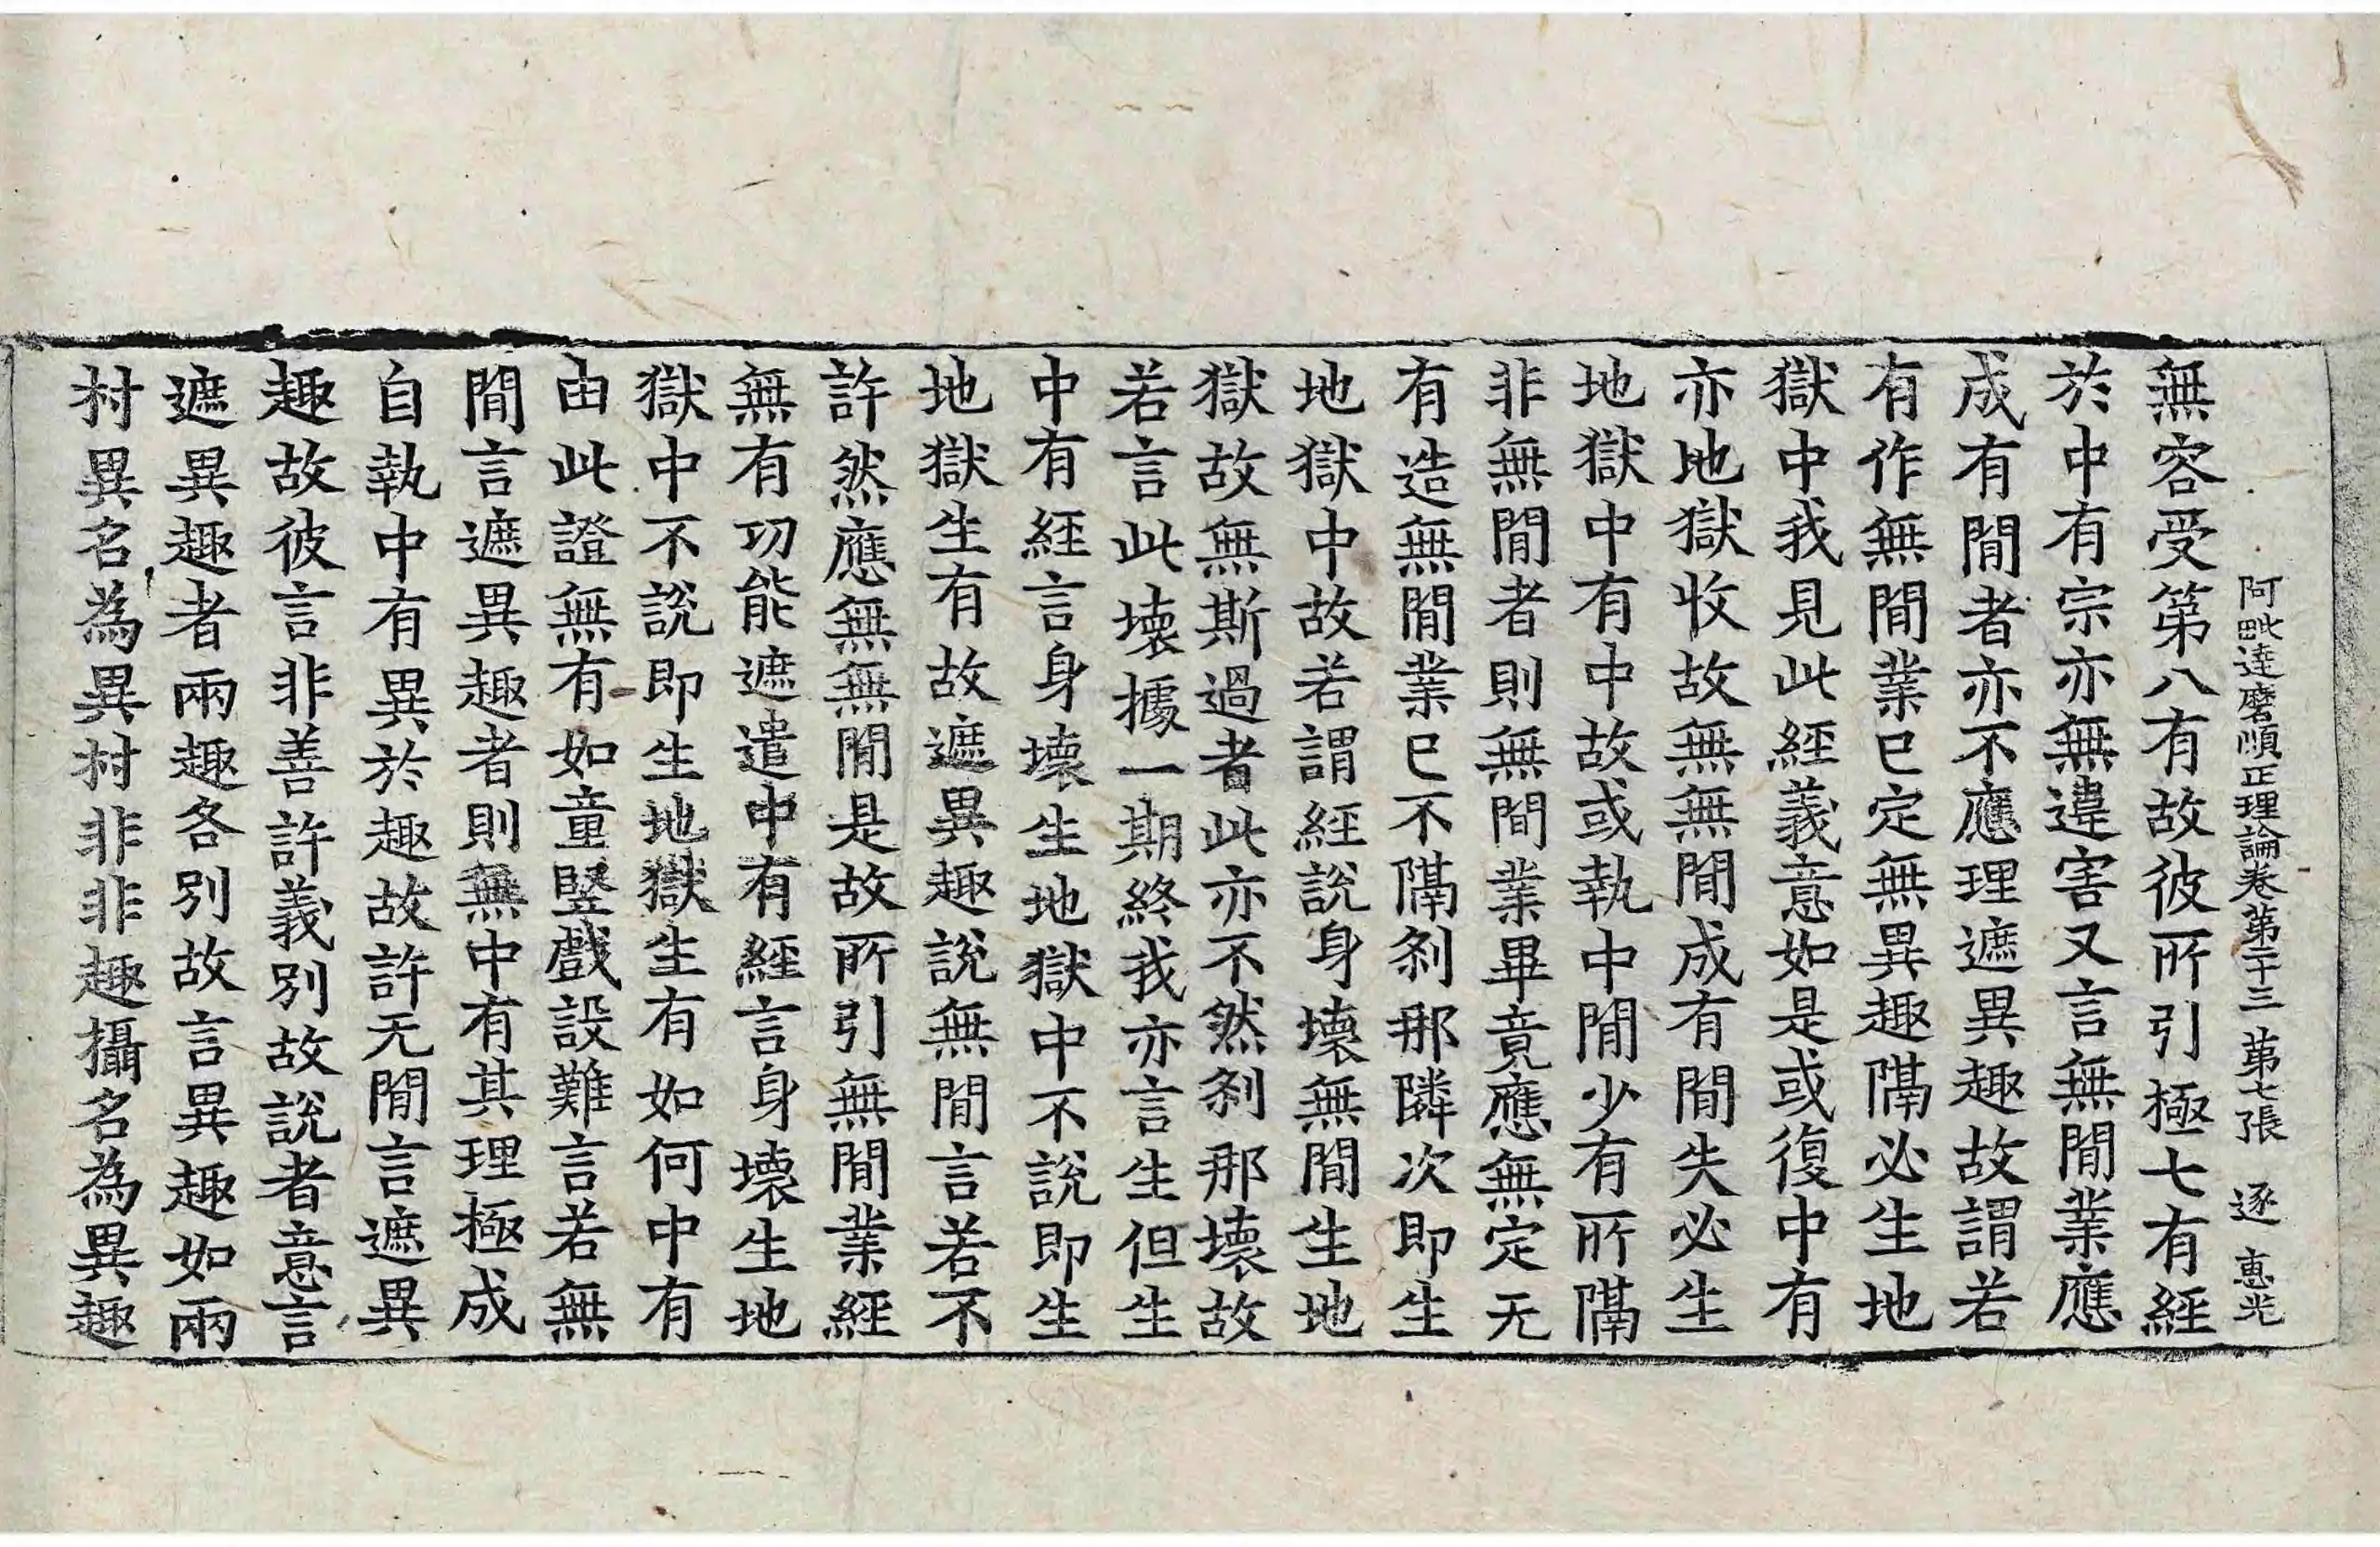 阿毗達磨順正理論卷第二十三 第七張 逐 惠光
無容受第八有故彼所引極七有經
於中有宗亦無違害又言無間業應
成有間者亦不應理遮異趣故謂若
有作無間業已定無異趣隔必生地
獄中我見此經義意如是或復中有
亦地獄收故無無間成有間失必生
地獄中有中故或執中間少有所隔
非無間者則無間業畢竟應無定无
有造無間業已不隔剎那隣次即生
地獄中故若謂經說身壞無間生地
獄故無斯過者此亦不然剎那壞故
若言此壞據一期終我亦言生但生
中有經言身壞生地獄中不說即生
地獄生有故遮異趣說無間言若不
許然應無無間是故所引無間業經
無有功能遮遣中有經言身壞生地
獄中不說即生地獄生有如何中有
由此證無有如童豎戲設難言若無
間言遮異趣者則無中有其理極成
自執中有異於趣故許无間言遮異
趣故彼言非善許義別故說者意言
遮異趣者兩趣各別故言異趣如兩
村異名為異村非非趣攝名為異趣